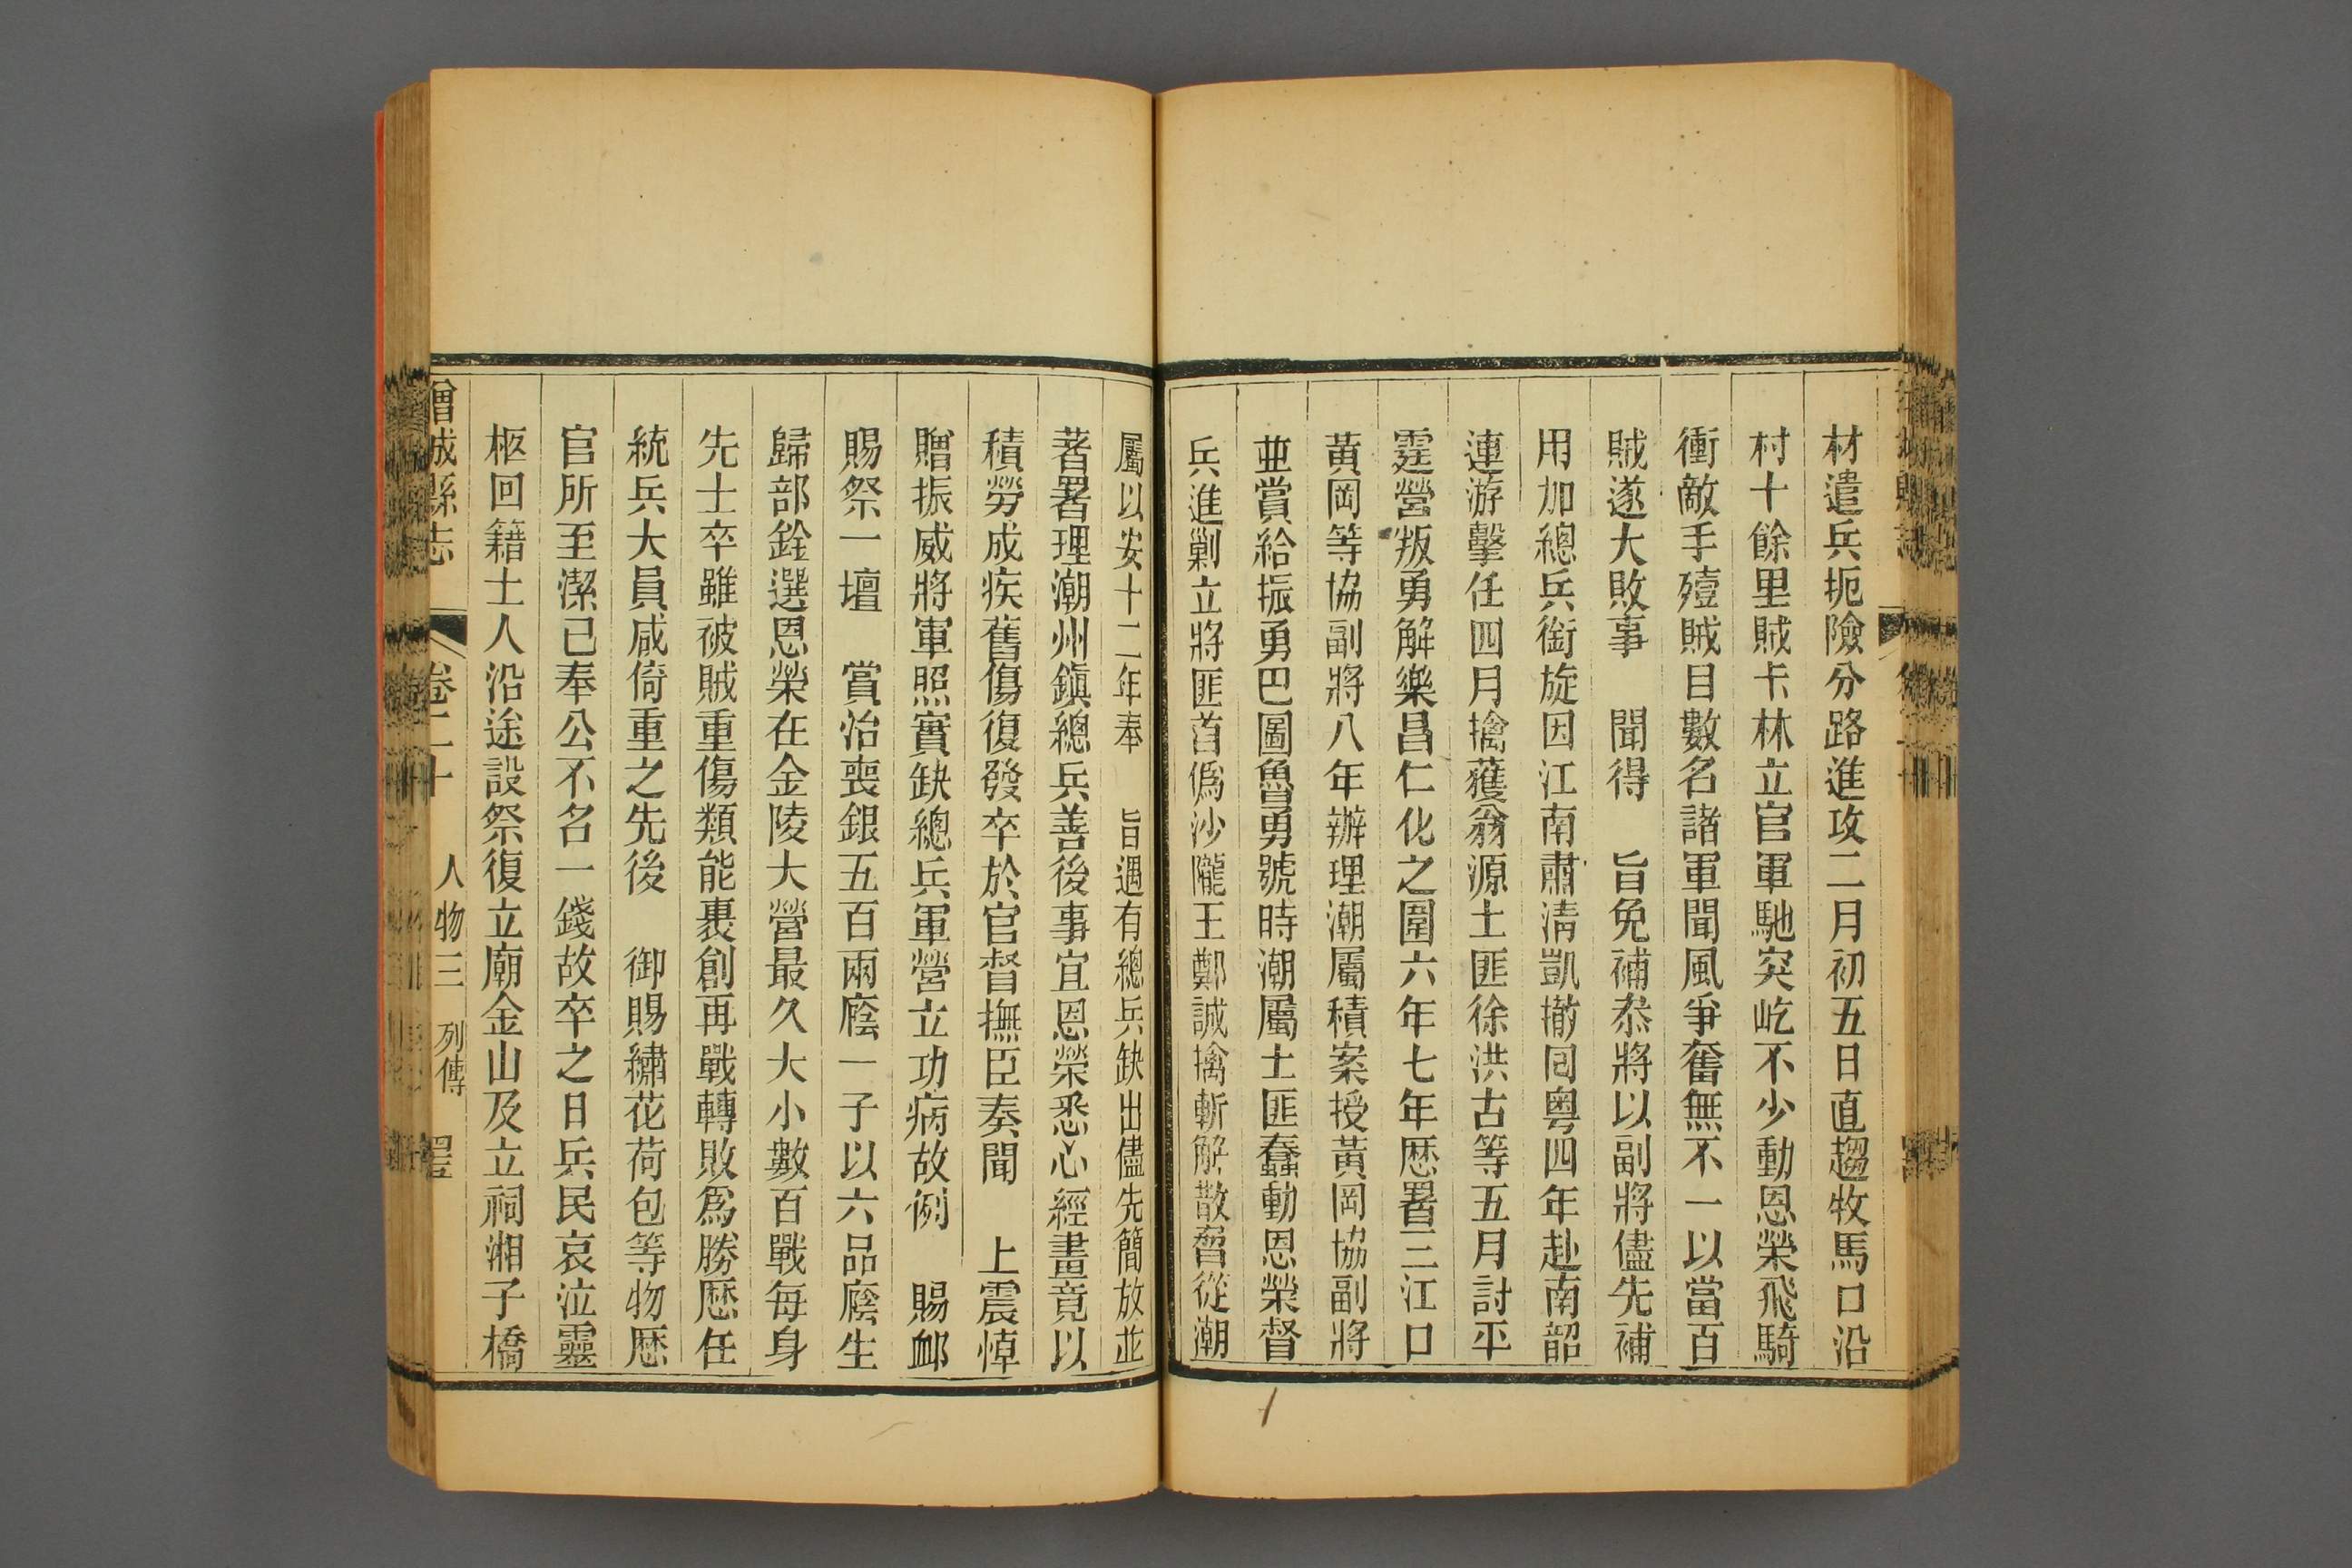 材遣兵扼險分路進攻二月初五日直趨牧馬口沿
村十餘里賊卡林立官軍馳突屹不少動恩榮飛騎
衝敵手殪賊目數名諸軍聞風爭奮無不一以當百
賊遂大敗事　聞得　旨免補叅將以副將儘先補
用加總兵銜旋因江南肅清凱撤回粤四年赴南韶
連游擊任四月擒獲翁源土匪徐洪古等五月討平
霆營叛勇解樂昌仁化之圍六年七年歷署三江口
黃岡等協副將八年辦理潮屬積案授黃岡協副將
並賞給振勇巴圖魯勇號時潮屬土匪蠢動恩榮督
兵進剿立將匪首僞沙隴王鄭誠擒斬解散脅從潮
屬以安十二年奉　旨遇有總兵缺出儘先簡放並
著署理潮州鎭總兵善後事宜恩榮悉心經畫竟以
積勞成疾舊傷復發卒於官督撫臣奏聞　上震悼
贈振威將軍照實缺總兵軍營立功病故例　賜卹
賜祭一壇　賞治喪銀五百兩廕一子以六品廕生
歸部銓選恩榮在金陵大營最久大小數百戰每身
先士卒雖被賊重傷類能裹創再戰轉敗爲勝歷任
統兵大員咸倚重之先後　御賜繡花荷包等物歷
官所至潔己奉公不名一錢故卒之日兵民哀泣靈
柩回籍士人沿途設祭復立廟金山及立祠湘子橋
增城縣志　卷二十　人物三　列傳